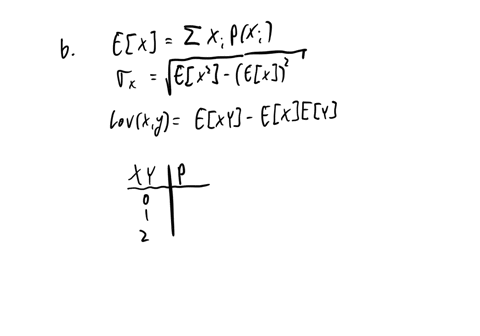 b. E[X] = Σ Xᵢ P(Xᵢ)
σₓ = √(E[X²] - (E[X])²)
Cov(X,Y) = E[XY] - E[X]E[Y]
XY | P
0
1
2